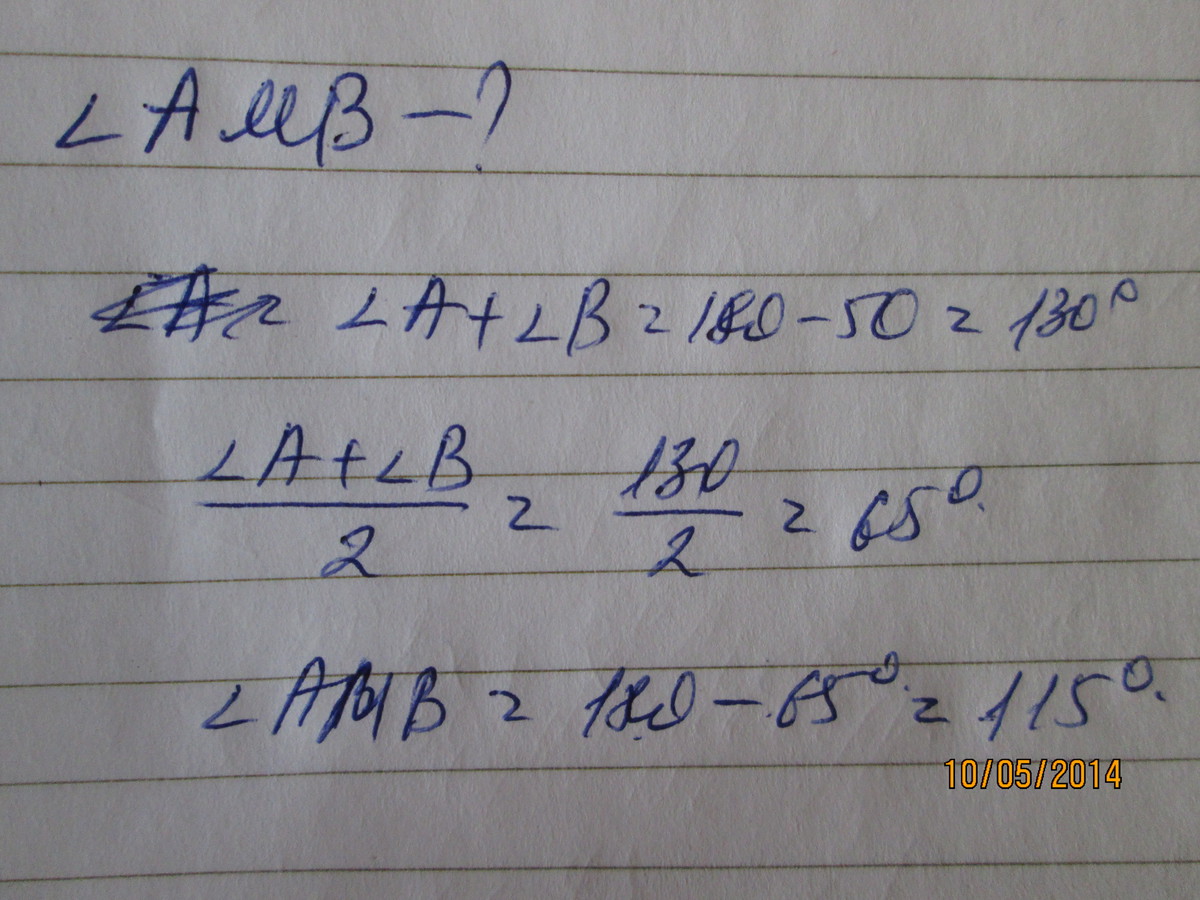 ∠AMB - ?
∠A + ∠B = 180 - 50 = 130°
(∠A + ∠B)/2 = 130/2 = 65°.
∠AMB = 180 - 65° = 115°.
10/05/2014